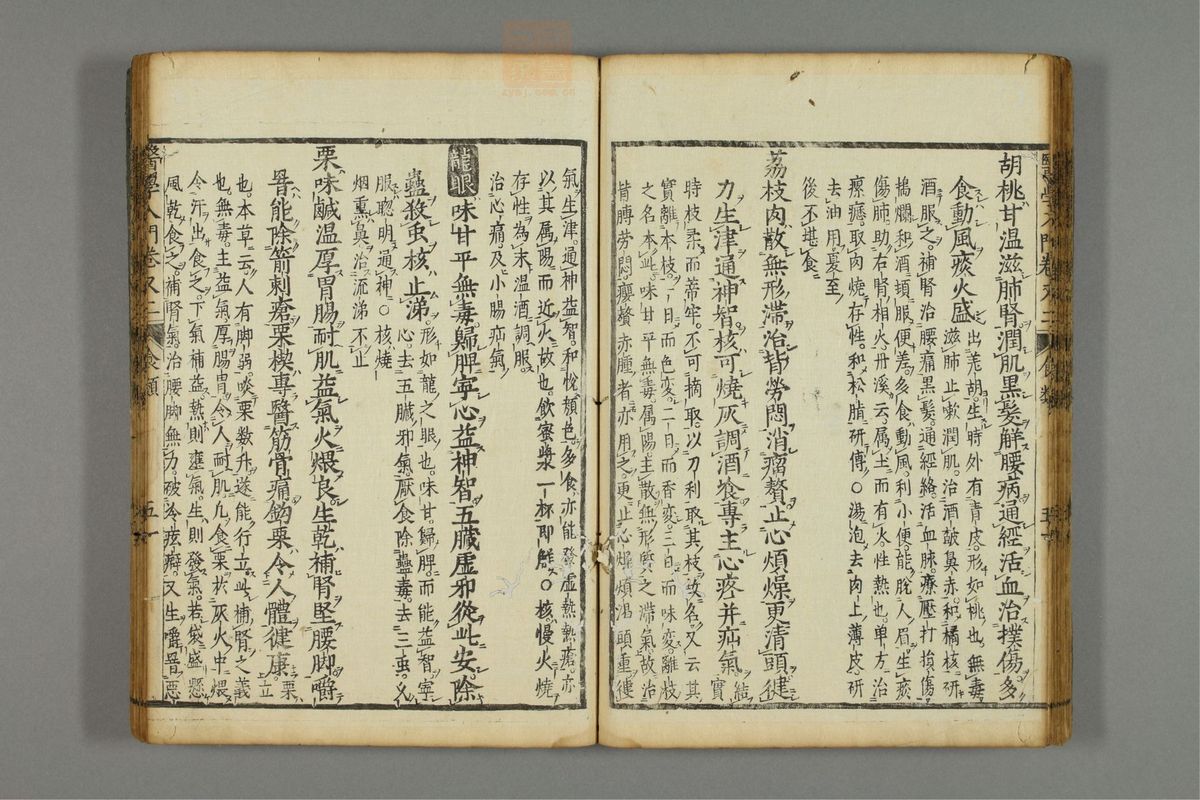 胡桃甘温滋肺腎潤肌黒髪解腰病通經活血治撲傷多
食動風痰火盛
出羌胡生時外有青皮形如桃也無毒
滋肺止嗽潤肌治酒皶鼻赤和橘核研
酒服之補腎治腰痛黒髪通經絡活血脉療壓打損傷
搗爛和酒頓服便差多食動風利小便能脫人眉生痰
傷肺助右腎相火丹溪云属土而有火性熱也単方治
瘰癧取肉焼存性和松脂研傅○湯泡去肉上薄皮研
去油用夏至
後不堪食
荔枝肉散無形滞治背勞悶消瘤贅止心煩燥更清頭徤
力生津通神智核可燒灰調酒飡專主心疼并疝氣
結實
時枝柔而蒂牢不可摘取以刀利取其枝故名又云其
實離本枝一日而色変二日而香変三日而味変離枝
之名本此味甘平無毒属陽主散無形質之滞氣故治
背膊勞悶瘿贅赤腫者亦用之更止心燥煩渇頭重徤
氣生津通神益智和悅顔色多食亦能發虚熱熱瘡亦
以其属陽而近火故也飲蜜漿一杯即觧○核慢火燒
存性為末温酒調服
治心痛及小腸疝氣
龍眼味甘平無毒歸脾寧心益神智五臓虚邪從此安除
蠱殺虫核止涕
形如龍之眼也味甘歸脾而能益智寧
心去五臓邪氣厭食除蠱毒去三虫久
服聡明通神○核燒
烟熏鼻治流涕不止
栗味鹹温厚胃腸耐肌益氣火煨良生乾補腎堅腰脚嚼
罯能除箭刺瘡栗楔專醫筋骨痛鈎栗令人體徤康
栗立
也本草云人有脚弱啖栗数升遂能行立此補腎之義
也無毒主益氣厚腸胃令人耐肌凢食栗於灰火中煨
令汗出食之下氣補益熱則壅氣生則發氣若袋盛懸
風乾食之補腎氣治腰脚無力破冷痃癖又生嚼罯悪
醫學入門卷双二 食類 五